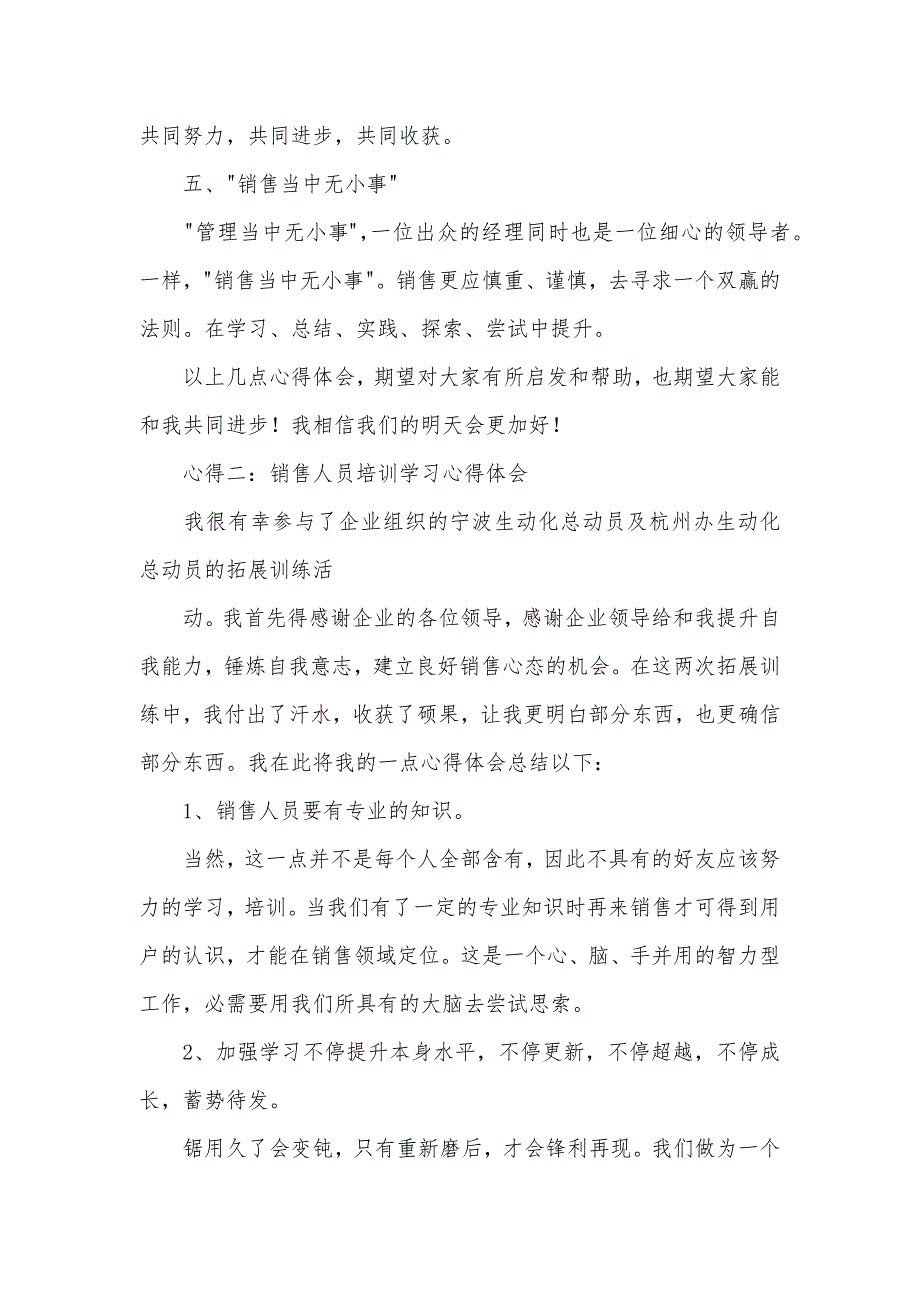 共同努力，共同进步，共同收获。
五、"销售当中无小事"
"管理当中无小事"，一位出众的经理同时也是一位细心的领导者。
一样，"销售当中无小事"。销售更应慎重、谨慎，去寻求一个双赢的
法则。在学习、总结、实践、探索、尝试中提升。
以上几点心得体会，期望对大家有所启发和帮助，也期望大家能
和我共同进步！我相信我们的明天会更加好！
心得二：销售人员培训学习心得体会
我很有幸参与了企业组织的宁波生动化总动员及杭州办生动化
总动员的拓展训练活
动。我首先得感谢企业的各位领导，感谢企业领导给和我提升自
我能力，锤炼自我意志，建立良好销售心态的机会。在这两次拓展训
练中，我付出了汗水，收获了硕果，让我更明白部分东西，也更确信
部分东西。我在此将我的一点心得体会总结以下：
1、销售人员要有专业的知识。
当然，这一点并不是每个人全部含有，因此不具有的好友应该努
力的学习，培训。当我们有了一定的专业知识时再来销售才可得到用
户的认识，才能在销售领域定位。这是一个心、脑、手并用的智力型
工作，必需要用我们所具有的大脑去尝试思索。
2、加强学习不停提升本身水平，不停更新，不停超越，不停成
长，蓄势待发。
锯用久了会变钝，只有重新磨后，才会锋利再现。我们做为一个